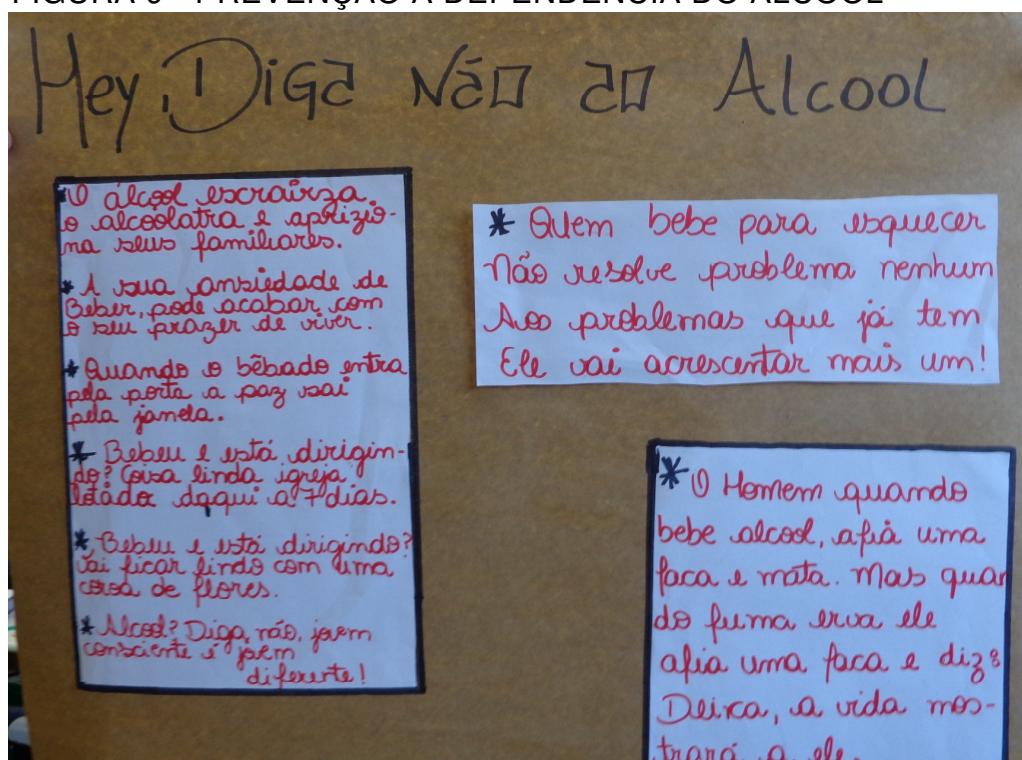 FIGURA 6 - PREVENÇÃO À DEPENDÊNCIA DO ÁLCOOL
Hey, Diga Não ao Alcool
*O álcool escraviza
o alcoólatra e aprizio-
na seus familiares.
* A sua ansiedade de
Beber, pode acabar com
o seu prazer de viver.
* Quando o bêbado entra
pela porta a paz sai
pela janela.
* Bebeu e está dirigin-
do? Coisa linda igreja
lotada daqui a 7 dias.
* Bebeu e está dirigindo?
Vai ficar lindo com uma
coroa de flores.
* Alcool? Diga, não, jovem
consciente é jovem
diferente!
* Quem bebe para esquecer
Não resolve problema nenhum
Aos problemas que já tem
Ele vai acrescentar mais um!
* O Homem quando
bebe alcool, afia uma
faca e mata. Mas quan
do fuma erva ele
afia uma faca e diz:
Deixa, a vida mos-
trará a ele.